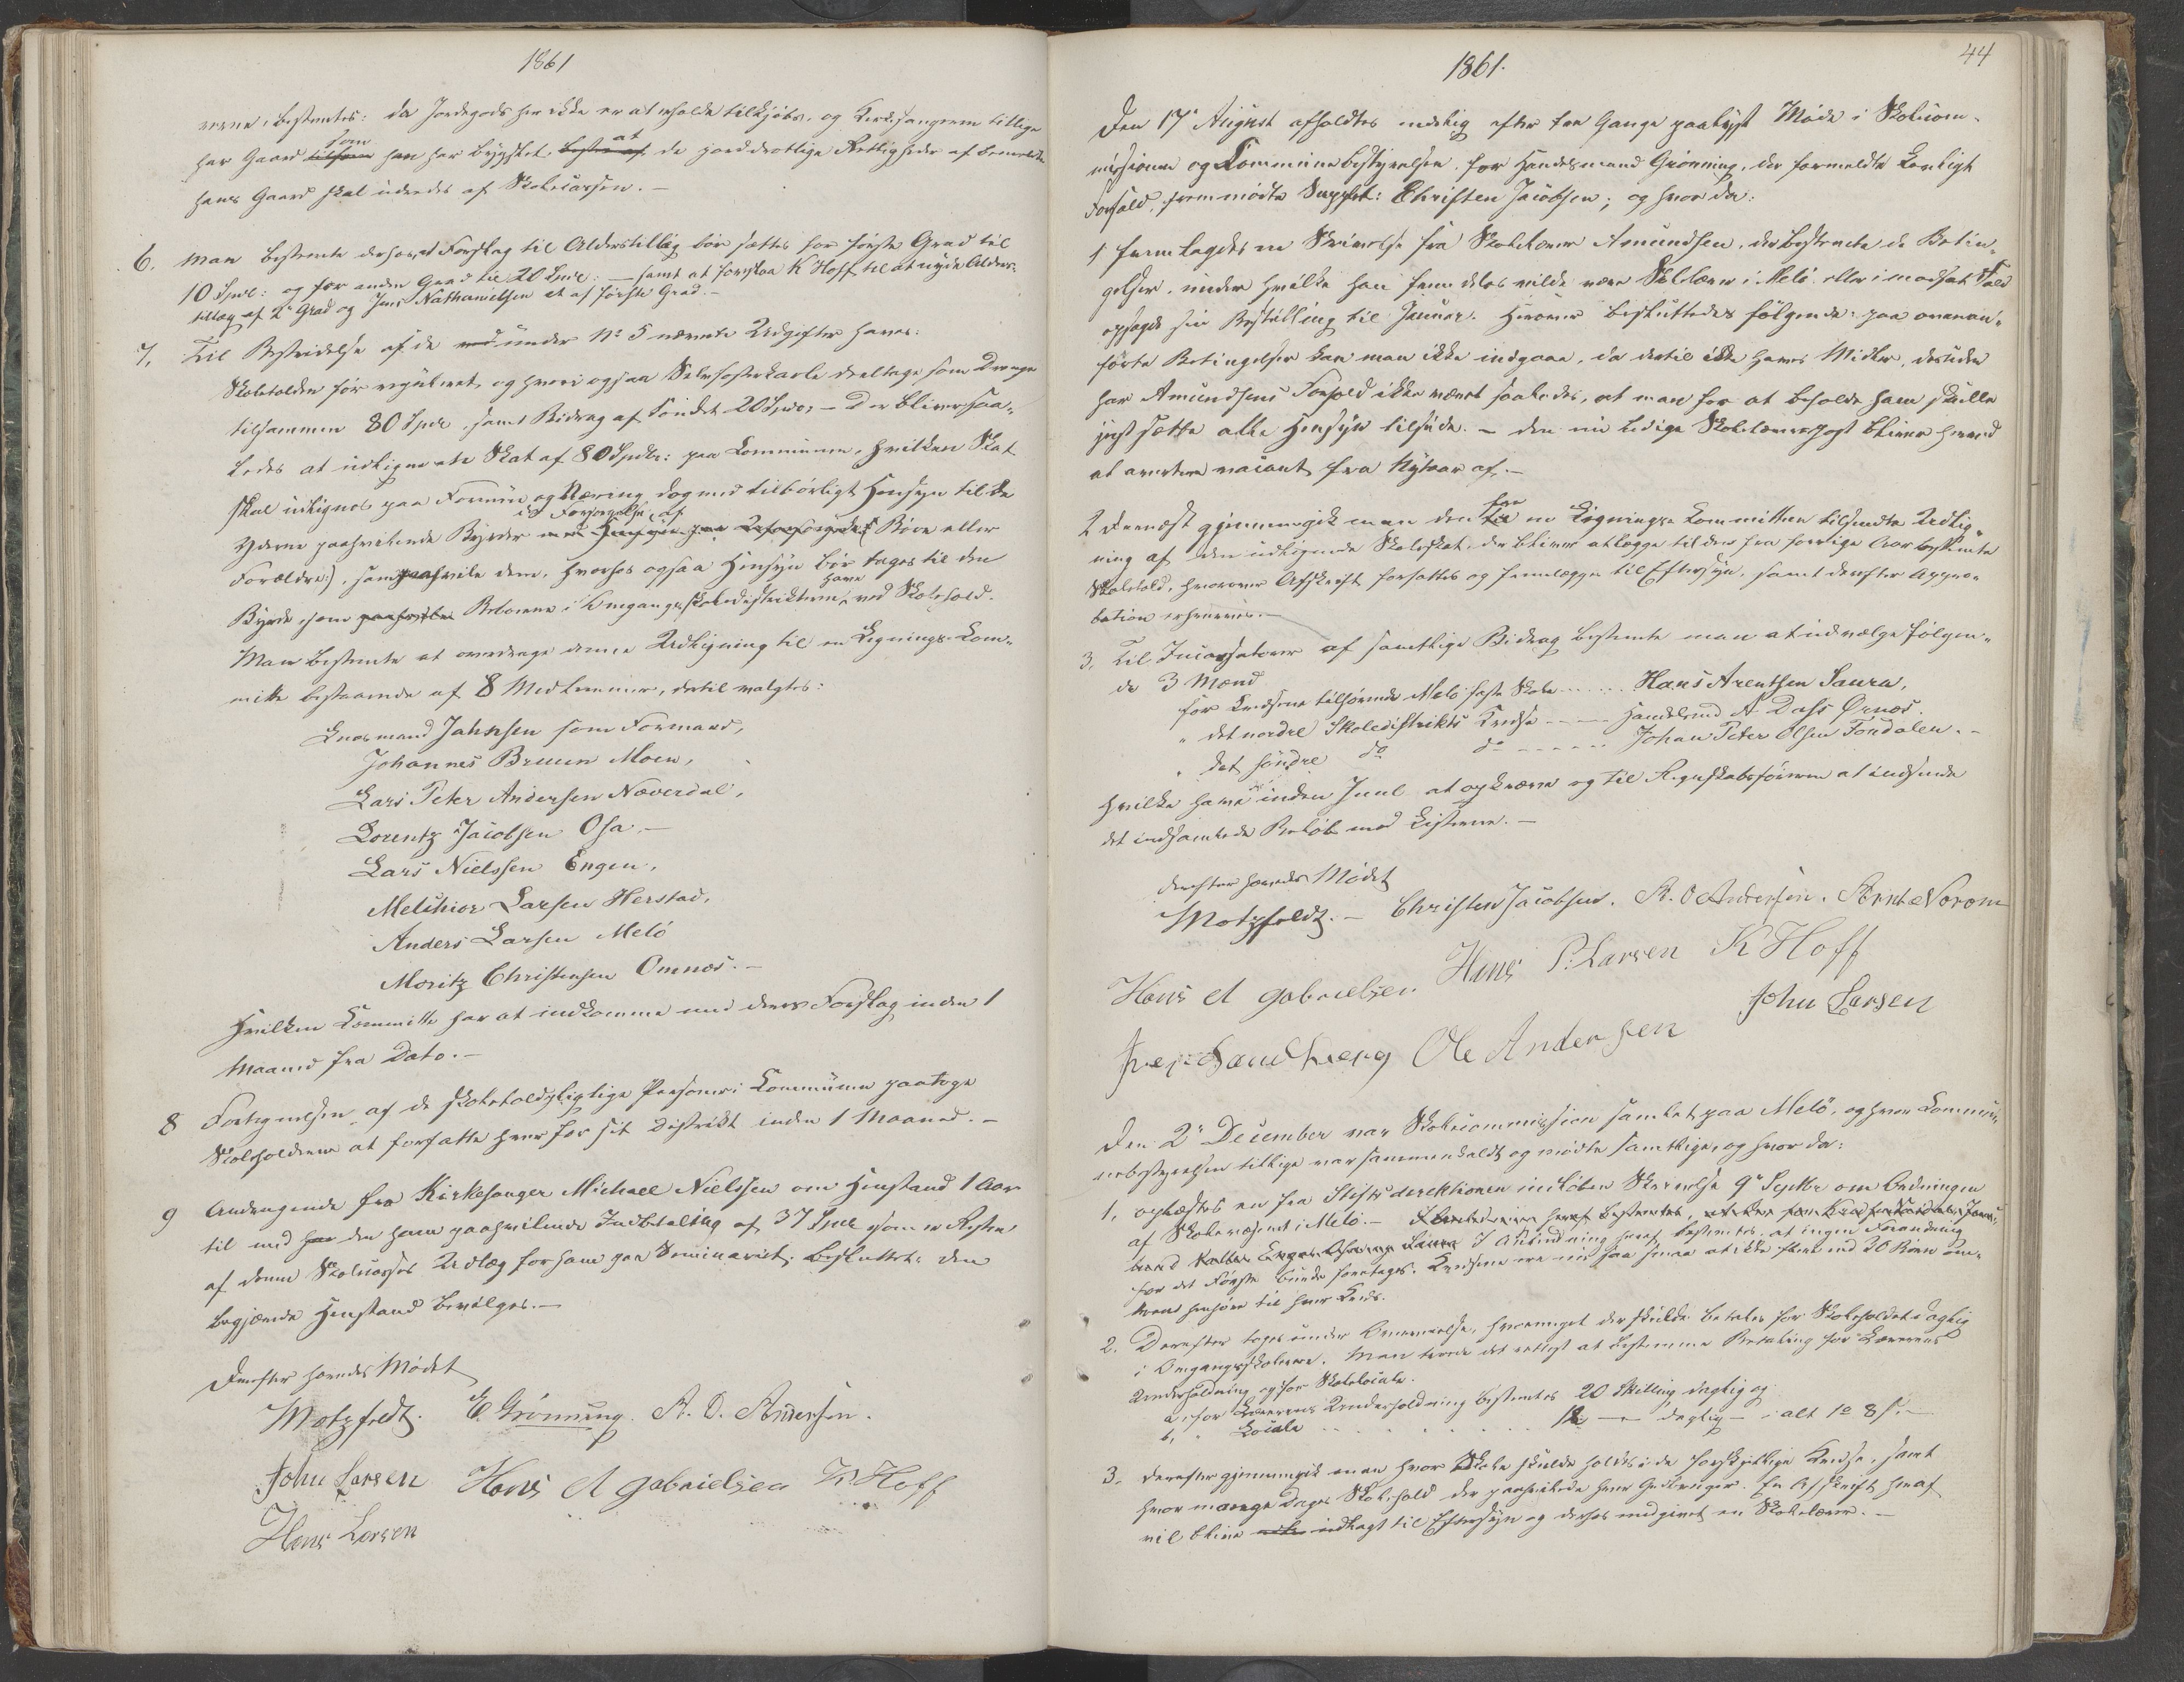 1861
rerne, bestemtes: da Jordegods her ikke er at erholde tilkjøbs, og Kirkesangeren tillige
som at
har Gaard tilhøre han har bygslet, de jorddrotlige Rettigheder af bemeldte
hans Gaard skal udredes af Skolecassen. —
6. Man bestemte derhos, et Forslag til Alderstillæg bør sættes for første Grad til
10 Spd: og for anden Grad til 20 Spd: — samt at foreslaa K Hoff til at nyde Alders-
tillæg af 2den Grad og Jens Nathanielsen et af første Grad. —
7, Til Bestridelse af de ved under No 5 nævnte Udgifter haves:
Skoletolden før reguleret, og hvori ogsaa Selvfosterkarle deeltage som Drenge
tilsammen 80 Spd, samt Bidrag af Fondet 20 Spd, — Der bliver saa-
ledes at udligne en Skat af 80 Spdlr: paa Communen, hvilken Skat
skal udlignes paa Formue og Næring dog med tilbørligt Hensyn til de
i Forsørgelse af
Yderne paahvilende Byrder med Hensyn paa uforsørgede Børn eller
Forældre), som paahvile dem, hvorhos ogsaa Hensyn bør tages til den
have
Byrde, som paahviler Beboerne i Omgangsskoledistrikterne, ved Skolehold.
Man bestemte at overdrage denne Udligning til en Lignings-Com-
mitte bestaaende af 8 Medlemmer, dertil valgtes:
Lensmand Jahnsen som Formand,
Johannes Bruun Moen,
Lars Peter Andersen Næverdal,
Lorentz Jacobsen Osa. —
Lars Nielssen Engen,
Melchior Larsen Herstad,
Anders Larsen Melö
Moritz Christensen Omnæs. —
Hvilken Committe har at indkomme med deres Forslag inden 1
Maaned fra Dato. —
8 Fortegnelsen af de skoletoldpligtige Personer i Communen paatoge
Skoleholderne at forfatte hver for sit Distrikt inden 1 Maaned. —
9 Andragende fra Kirkesanger Michael Nielssen om Henstand 1 Aar
til med den ham paahvilende Indbetaling af 37 Spd som er Resten
af denne Skolecasses Udlæg for ham paa Seminariet. Besluttet: den
begjærede Henstand bevilges. —
Derefter hævedes Mødet
Motzfeldt. E. Grönning. A. O. Andersen.
John Larsen Hans A Gabrielsen K. Hoff
Hans Larsen
1861. 44
Den 17de August afholdtes endelig efter tre Gange paalyst Møde i Skolecom-
missionen og Communebestyrelsen. For Handelsmand Grönning, der formeldte lovligt
Forfald, fremmødte Supplt: Christen Jacobsen; og hvor da:
1 fremlagdes en Skrivelse fra Skolelærer Amundsen, der bestemte de Betin-
gelser, under hvilke han fremdeles vilde være Skolelærer i Melö eller i modsat Fald
opsagde sin Bestilling til Januar. Herover besluttedes følgende: paa ovenan-
førte Betingelser kan man ikke indgaae, da dertil ikke haves Midler, desuden
har Amundsens Forhold ikke været saaledes, at man for at beholde ham skulde
just sætte alle Hensyn tilside. — den nu ledige Skolelærerpost bliver herved
at avertere vacant fra Nytaar af. —
fra
2 Dernæst gjennemgik man den til en Lignings-Committeen tilsendte Udlig-
ning af den udlignende Skoleskat, der bliver at lægge til den fra forrige Aar bestemte
Skoletold, hvorover Afskrift forfattes og fremlægges til Eftersyn, samt derefter Appro-
bation erhverves. —
3, Til Incassatorer af samtlige Bidrag bestemte man at udvælge følgen-
de 3 Mænd
for Kredsene tilhørende Melö faste Skole ...... Hans Arentsen Saura,
" det nordre Skoledistrikts Kredse ------ Handelsmd A. Dass Ørnæs.
" det søndre do do ------ Johan Peter Olsen Fondalen. —
hvilke have inden Juul at opkræve og til Regnskabsføreren at indsende
det indsamlede Beløb med Listerne. —
Derefter hævedes Mødet
Motzfeldt. — Christen Jacobsen. A. O Andersen. Arnt Norom
Hans A Gabrielsen Hans P. Larsen K Hoff
John Larsen
Ole Andersen
Den 2den December var Skolecommissionen samlet paa Melö, og hvor Commu-
nebestyrelsen tillige var sammenkaldt og mødte samtlige, og hvor da:
1, oplæstes en fra Stiftsdirektionen indløben Skrivelse 9de Septbr om Ordningen
af Skolevæsenet i Melö. — I Anledning heraf bestemtes, at ingen Forandring
for det Første burde foretages. Kredsene ere nu saa smaa at ikke flere end 30 Børn om-
trent henhøre til hver Kreds.
2. Derefter toges under Overveielse, hvormeget der skulde betales for Skoleholdet daglig
i Omgangsskolerne. Man troede det rettest at bestemme Betaling for Lærerens
Underholdning og for Skolelocale.
a, for Lærerens Underholdning bestemtes 20 Skilling daglig og
b, " Locale . . . . . . . . . 12 — daglig — i alt 1 8 s. —
3. Derefter gjennemgik man hvor Skole skulde holdes i de forskjellige Kredse, samt
hvor mange Dages Skolehold der paahvilede hver Gudbruger. En Afskrift heraf
vil blive indlagt til Eftersyn og derhos medgivet en Skolelærer. —